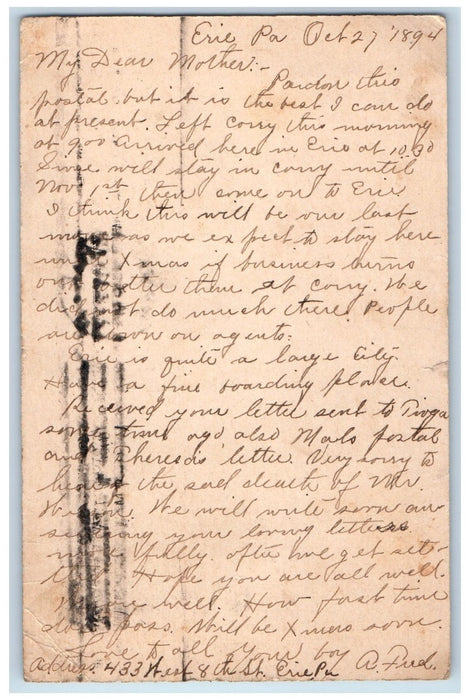 Erie Pa Oct 27 '1894
My Dear Mother:-
Pardon this
postal but it is the best I can do
at present. Left Corry this morning
at 9oo arrived here in Erie at 10.30
will stay in Corry until
Nov 1st then come on to Erie
I think this will be our last
as we expect to stay here
Xmas if business turns
out better then at Corry. We
did not do much there. People
are down on agents.
Erie is quite a large City.
Have a fine boarding place.
Received your letter sent to Tioga
some time ago also postal
and letter. Very sorry to
hear the sad death of Mr.
We will write soon
your loving letters
more fully after we get set-
Hope you are all well.
We are well. How fast time
does pass. Will be Xmas soon.
Love to all Your boy
Address. 433 West 8th St. Erie Pa A. Fred.